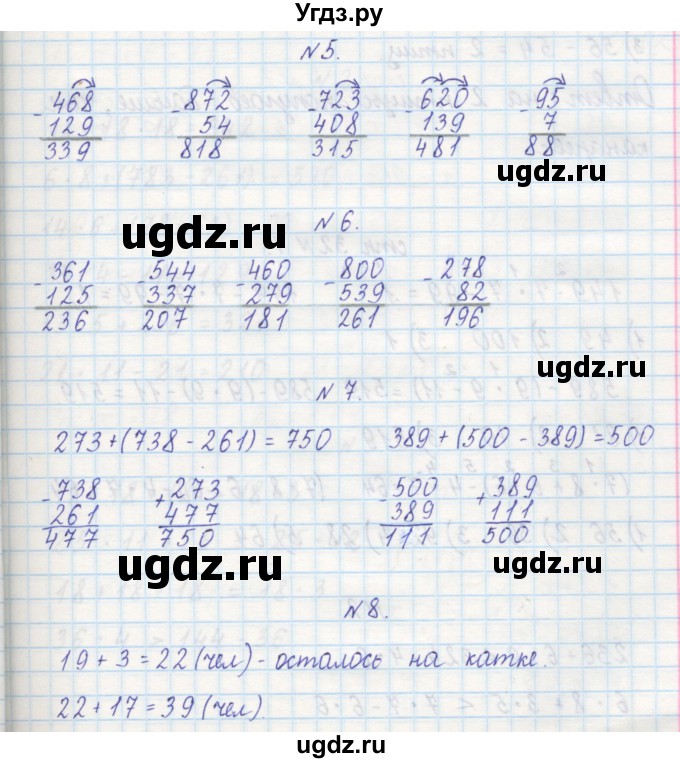 Угдз.ру
N 5.
- 468 - 872 - 723 - 620 - 95
129 54 408 139 7
339 818 315 481 88
ugdz.ru
ugdz.ru
N 6.
- 361 - 544 - 460 - 800 - 278
125 337 279 539 82
236 207 181 261 196
ugdz.ru
N 7.
273+(738 - 261) = 750 389 + (500 - 389) = 500
- 738 + 273 - 500 + 389
261 477 389 111
477 750 111 500
ugdz.ru
ugdz.ru
N 8.
19 + 3 = 22 (чел) - осталось на катке.
22 + 17 = 39 (чел).
ugdz.ru
ugdz.ru